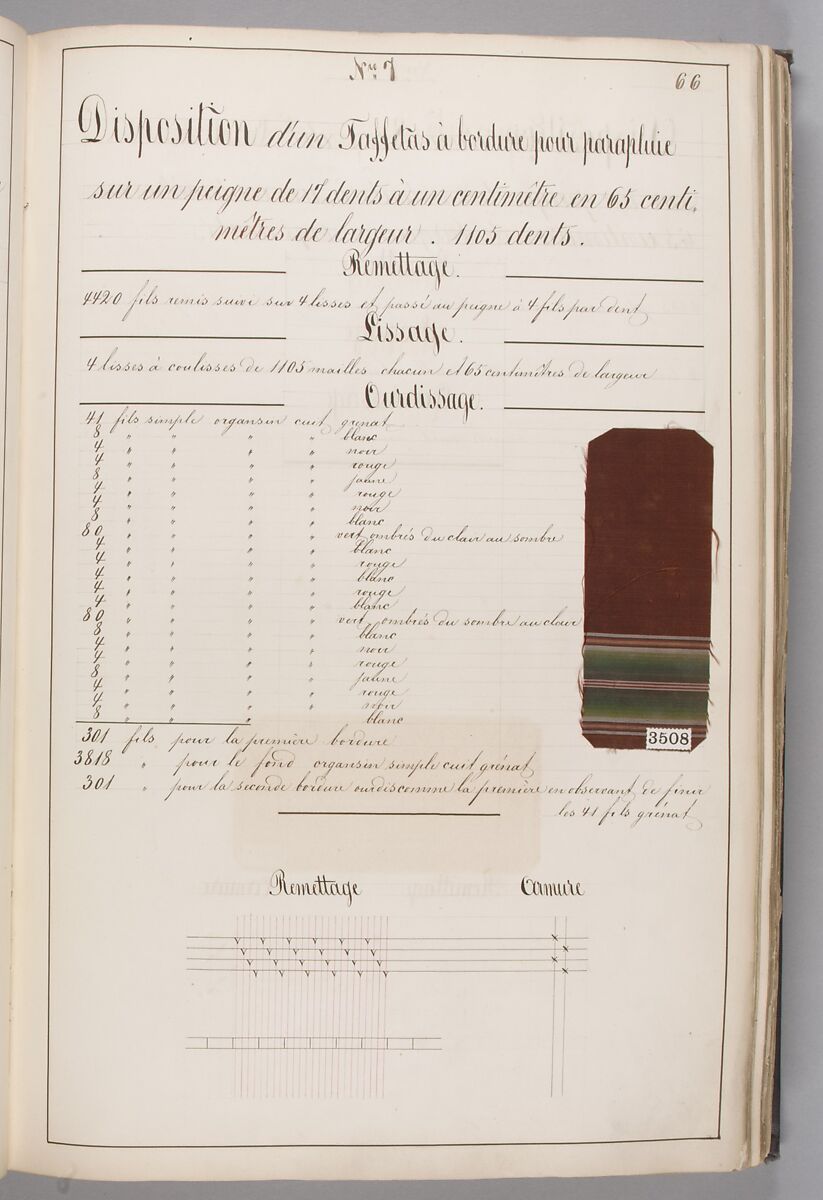 Nº 7
66
Disposition d'un Taffetas à bordure pour parapluie
sur un peigne de 17 dents à un centimètre en 65 centi,
mètres de largeur. 1105 dents.
Remettage.
4420 fils remis suivi sur 4 lisses et passé au peigne à 4 fils par dent
Lissage.
4 lisses à coulisses de 1105 mailles chacun et 65 centimètres de largeur
Ourdissage.
41 fils simple organsin cuit grénat
8 " " " " blanc
4 " " " " noir
4 " " " " rouge
8 " " " " jaune
4 " " " " rouge
4 " " " " noir
8 " " " " blanc
80 " " " " vert ombrés du clair au sombre
4 " " " " blanc
4 " " " " rouge
4 " " " " blanc
4 " " " " rouge
4 " " " " blanc
80 " " " " vert ombrés du sombre au clair
8 " " " " blanc
4 " " " " noir
4 " " " " rouge
8 " " " " jaune
4 " " " " rouge
4 " " " " noir
8 " " " " blanc
301 fils pour la première bordure
3818 " pour le fond organsin simple cuit grénat
301 " pour la seconde bordure ourdis comme la première en observant de finir
les 41 fils grénat
3508
Remettage Armure